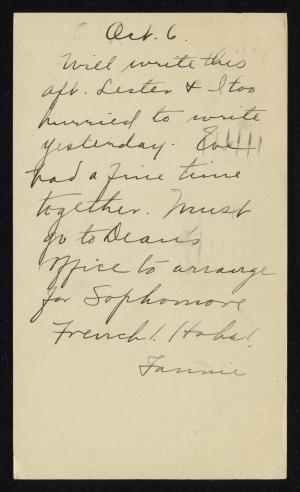 Oct. 6.
Will write this
aft. Lester & I too
hurried to write
yesterday.
had a fine time
together. Must
go to Dean's
office to arrange
for Sophomore
French! Haha!
Fannie